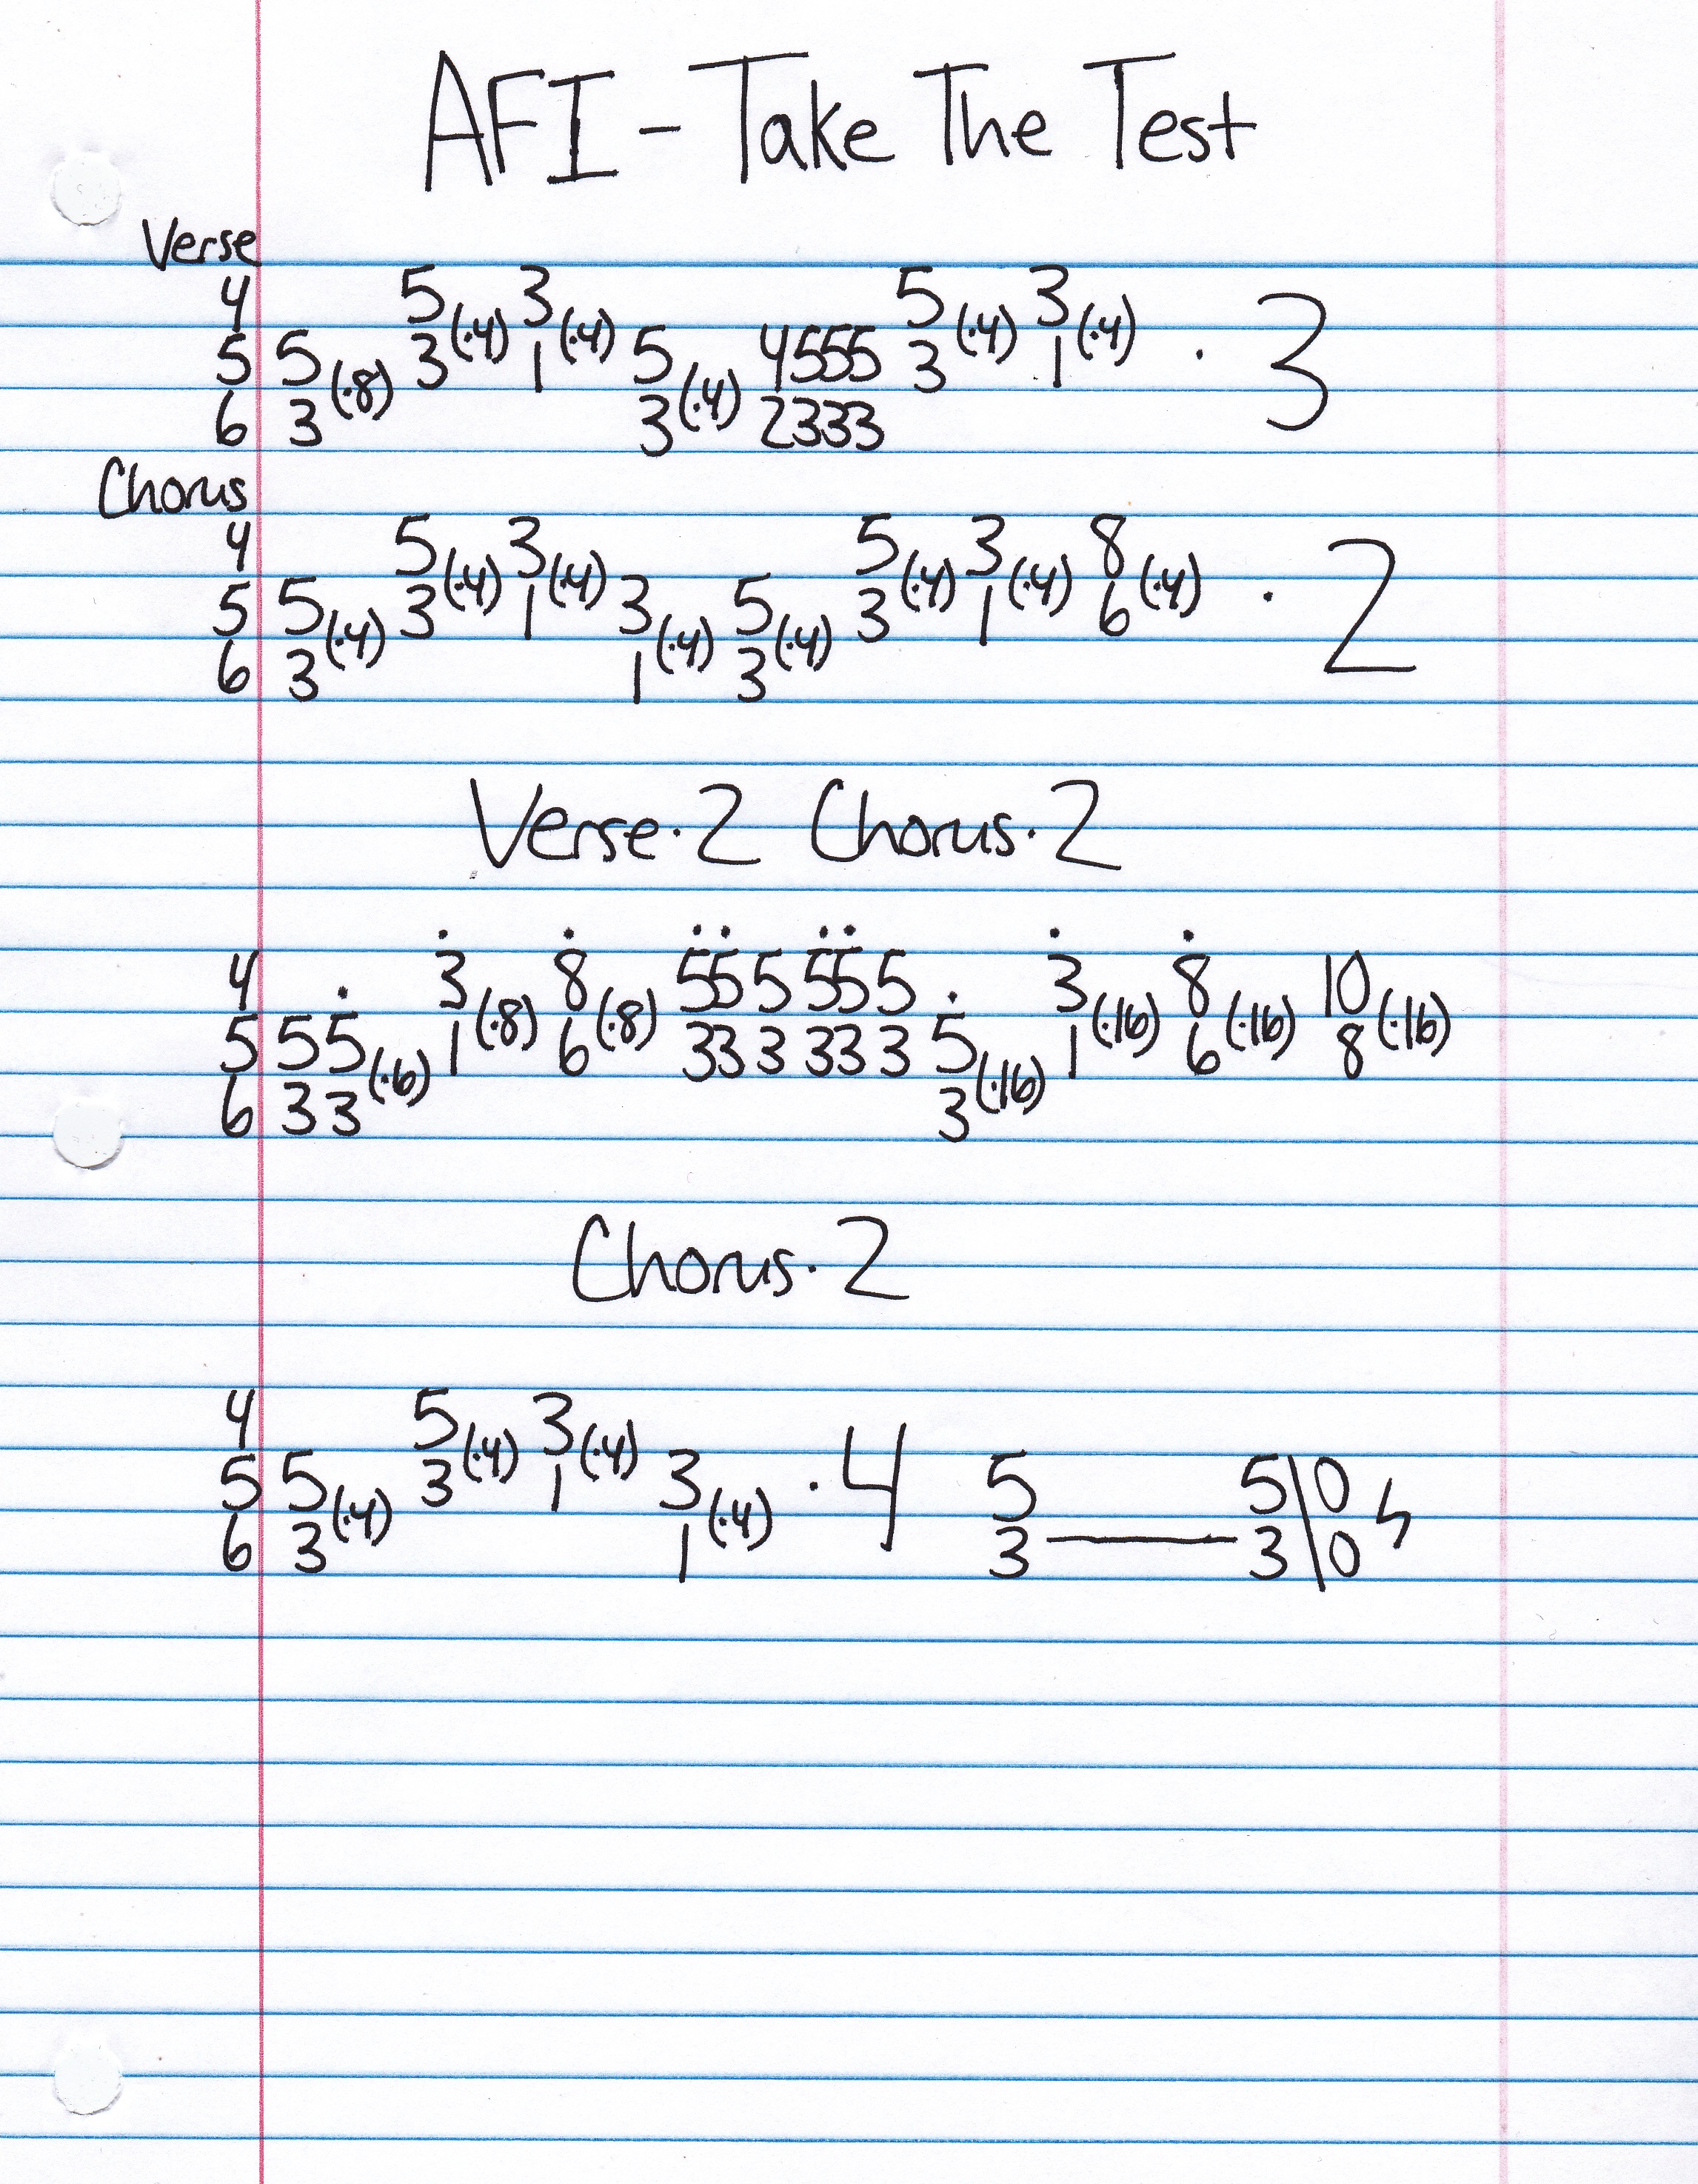 AFI - Take The Test
Verse
4 5(·4) 3(·4) 5(·4) 3(·4)
5 5(·8) 3 1 5(·4) 4555 3 1 · 3
6 3 3 2333
Chorus
4 5(·4) 3(·4) 5(·4) 3(·4) 8(·4)
5 5(·4) 3 1 3(·4) 5(·4) 3 1 6 · 2
6 3 1 3
Verse·2 Chorus·2
4 3(·8) 8(·8) 55 5 55 5 3(·16) 8(·16) 10(·16)
5 55(·6) 1 6 33 3 33 3 5(·16) 1 6 8
6 33 3
Chorus·2
4 5(·4) 3(·4)
5 5(·4) 3 1 3(·4) · 4 5 5\0
6 3 1 3 — 3\0